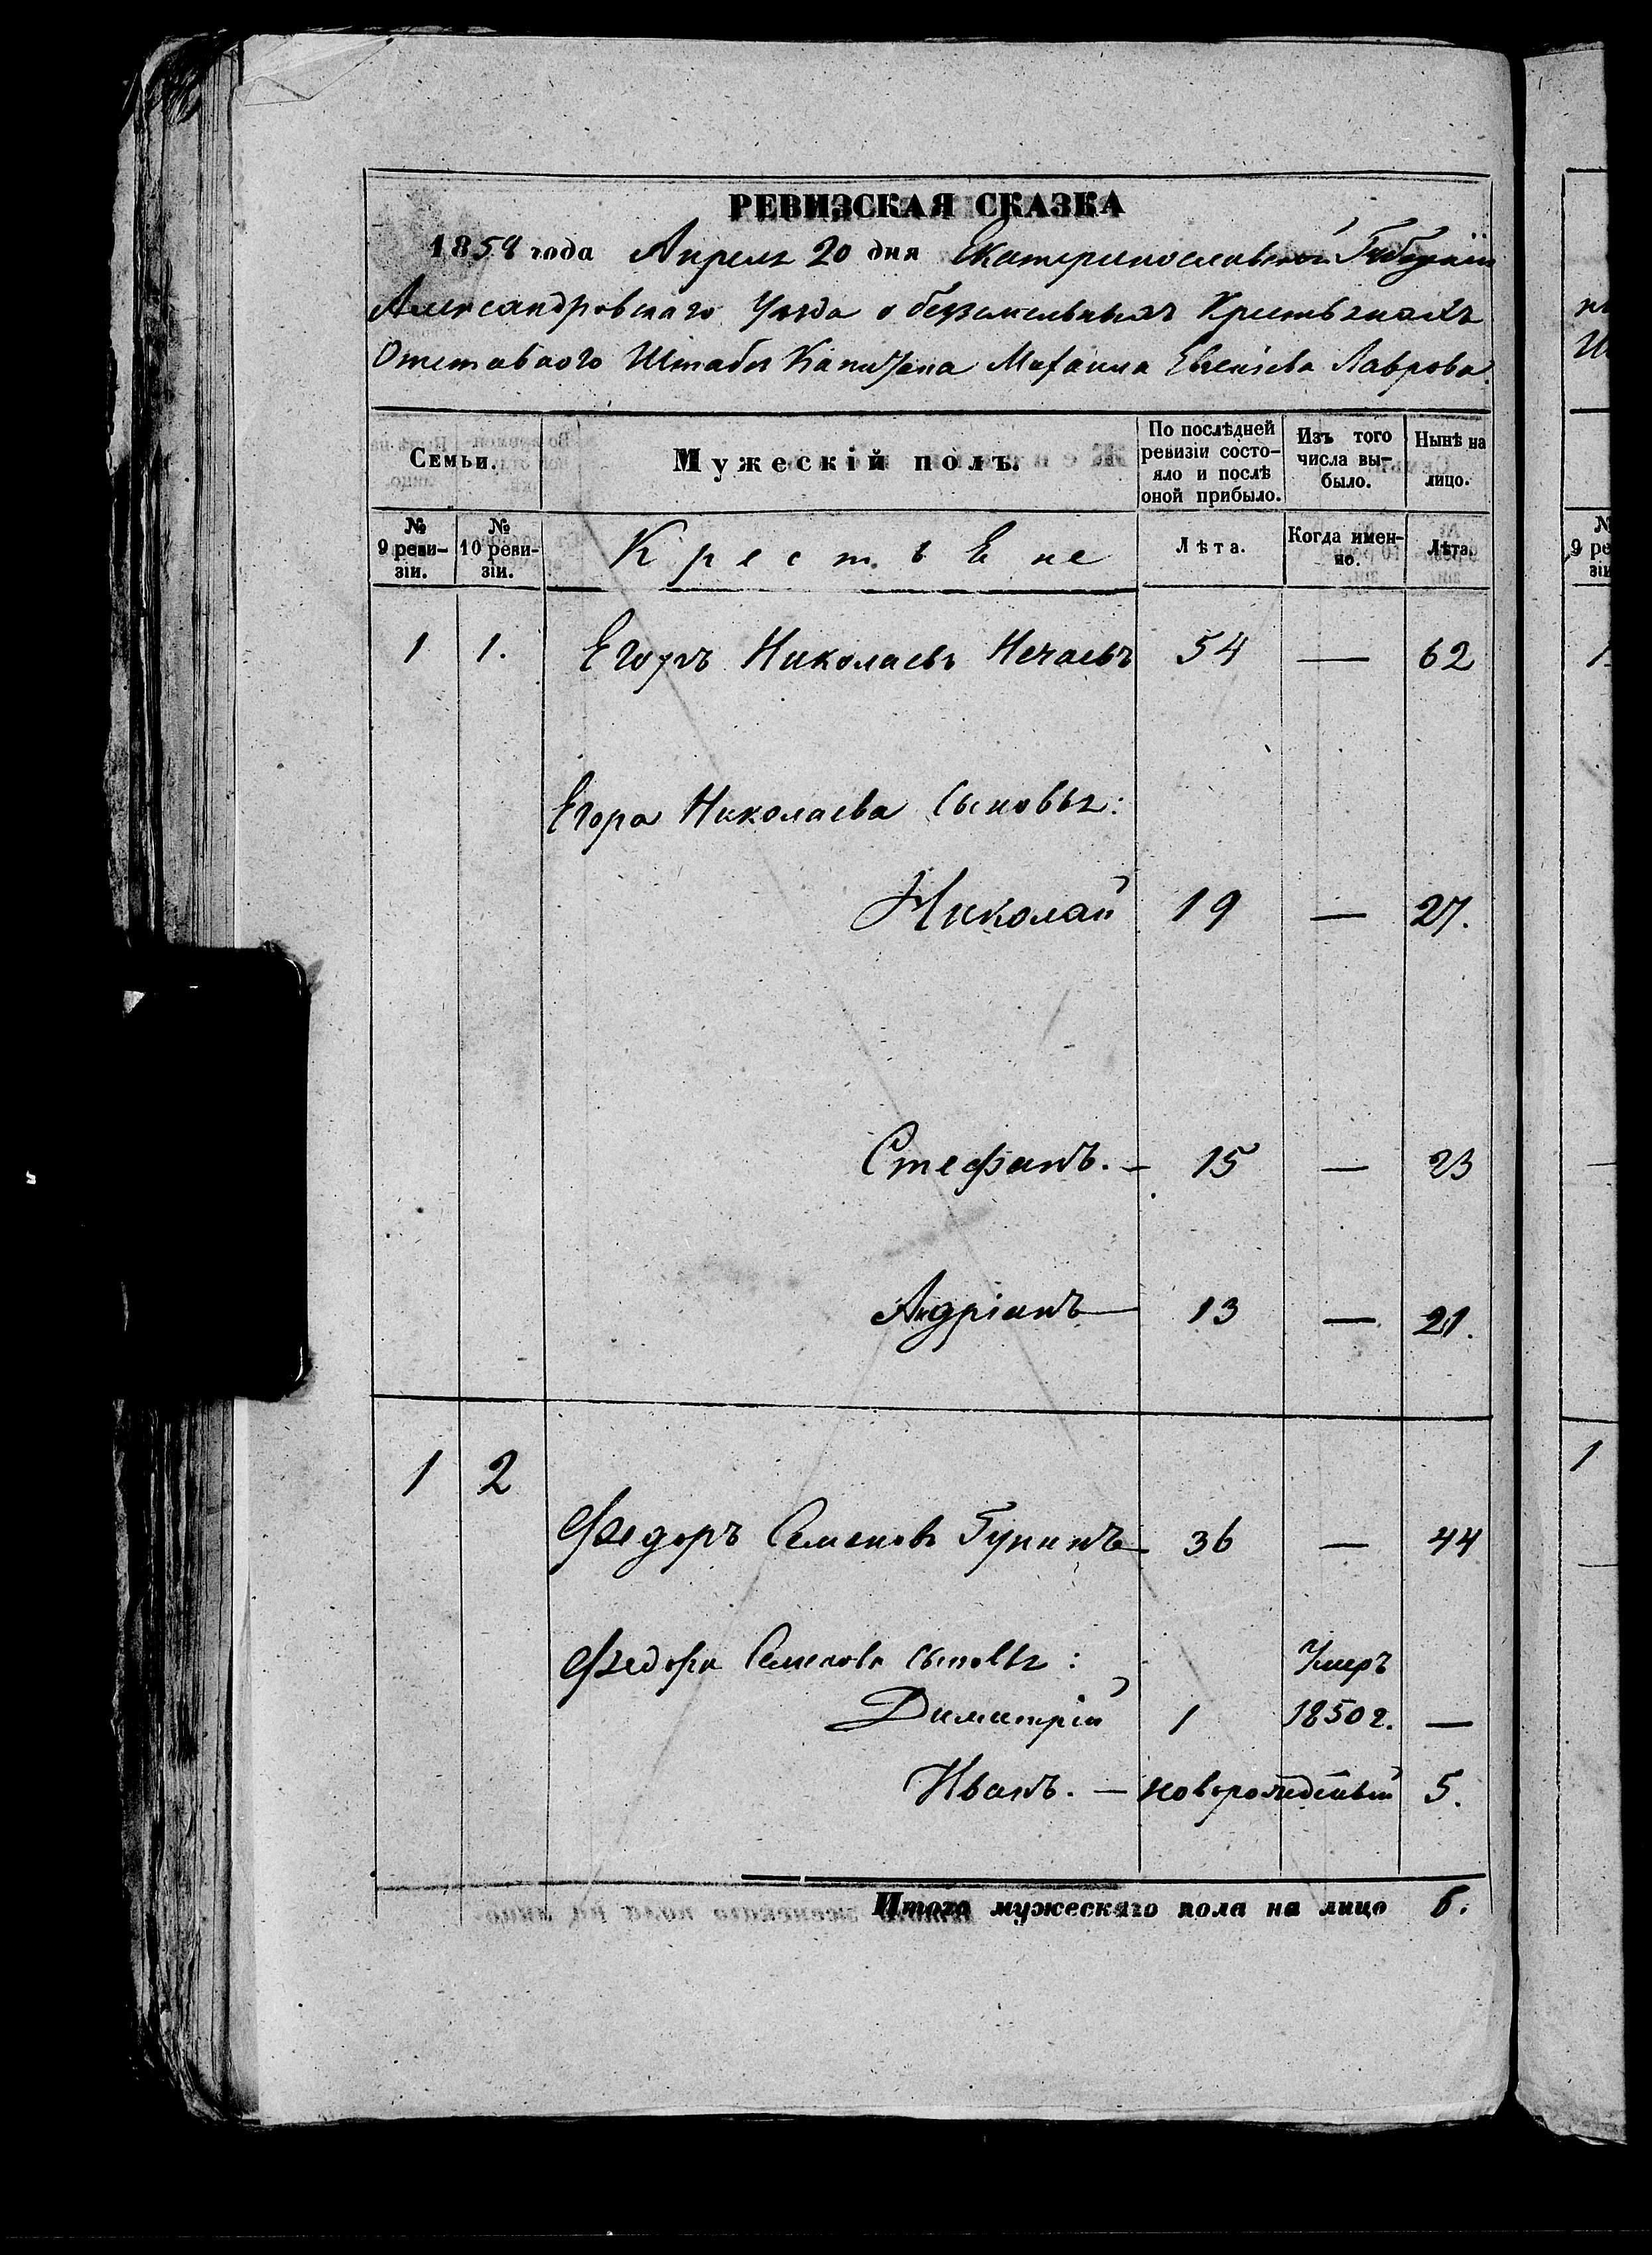 РЕВИЗСКАЯ СКАЗКА
1858 года Апреля 20 дня Екатеринославской Губерніи
Александровского Уезда о безземельныхъ Крестьянахъ
Отставного Штабсъ Капитана Лаврова.
Семьи.
Мужескій полъ.
По послѣдней ревизіи состо-
яло и послѣ
оной прибыло.
Изъ того
числа вы-
было.
Нынѣ на
лицо.
№
9 реви-
зіи.
№
10 реви-
зіи.
Крестьяне
Лѣта.
Когда имен-
но.
Лѣта.
1 1. Егоръ Николаевъ Нечаевъ 54 — 62
Егора Николаева Сыновья:
Николай 19 — 27.
Стефанъ. — 15 — 23
Андріанъ — 13 — 21.
1 2
Федоръ Семеновъ 36 — 44
Федора Семенова сыновья: Умеръ
Димитрій 1 1850 г. —
Иванъ. — новорожденый 5.
Итого мужескаго пола на лицо 6.